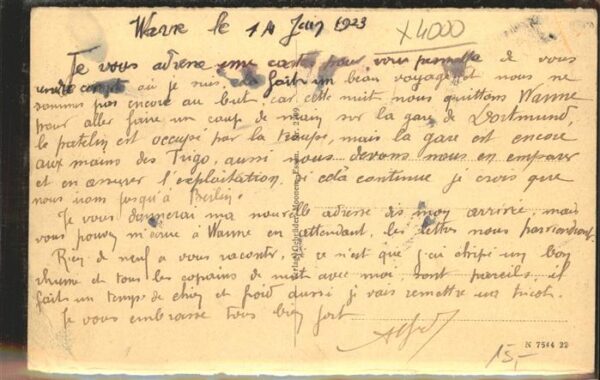 Wanne le 14 Juin 1923
X4000
Je vous adresse une carte pour vous permettre de vous
rendre compte où je suis, j'ai fait un beau voyage et nous ne
sommes pas encore au but, car cette nuit nous quittons Wanne
pour aller faire un coup de main sur la gare de Dortmund,
le patelin est occupé par la troupe, mais la gare est encore
aux mains des Frigo, aussi nous devons nous en emparer
et en assurer l'exploitation. Si cela continue je crois que
nous irons jusqu'à Berlin.
Je vous donnerai ma nouvelle adresse dès mon arrivée, mais
vous pouvez m'écrire à Wanne en attendant, les lettres nous
Rien de neuf à vous raconter, si ce n'est que j'ai chipé un bon
rhume et tous les copains de nuit avec moi sont pareils, il
fait un temps de chien et froid aussi je vais remettre un tricot.
Je vous embrasse tous bien fort
Alfred
N 7564 22
15,-